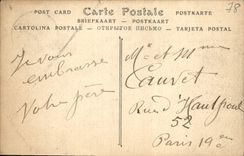 78
POST CARD Carte Postale POSTKARTE
BRIEFKAART — POSTKAART
CARTOLINA POSTALE — ОТКРЫТОЕ ПИСЬМО — TARJETA POSTAL
Je vous
embrasse
Votre père
Mr et Mme
Cauvet
Rue d'Hautpoul
52
Paris 19e